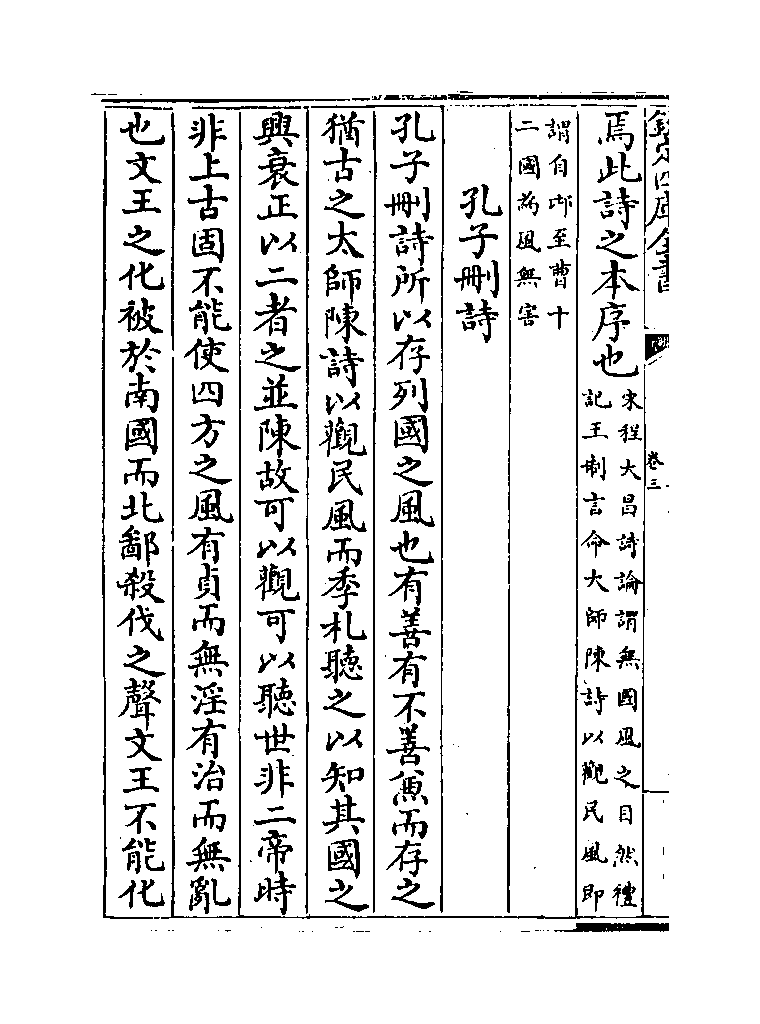 欽定四庫全書
卷三
焉此詩之本序也
宋程大昌詩論謂無國風之目然禮
記王制言命大師陳詩以觀民風即
謂自邶至曹十
二國為風無害
孔子刪詩
孔子刪詩所以存列國之風也有善有不善兼而存之
猶古之太師陳詩以觀民風而季札聽之以知其國之
興衰正以二者之並陳故可以觀可以聽世非二帝時
非上古固不能使四方之風有貞而無淫有治而無亂
也文王之化被於南國而北鄙殺伐之聲文王不能化